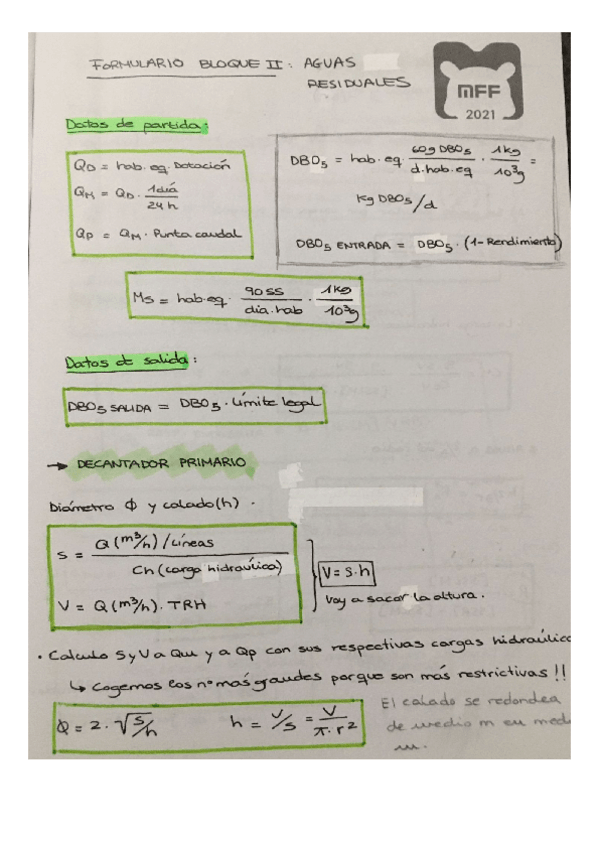 FORMULARIO BLOQUE II: AGUAS
RESIDUALES
MFF
2021
Datos de partida:
QD = hab. eq. Dotación
QM = QD · 1día / 24 h
QP = QM · Punta caudal
DBO5 = hab. eq. · 60g DBO5 / d. hab. eq · 1kg / 10³g =
kg DBO5/d
DBO5 ENTRADA = DBO5 · (1-Rendimiento)
MS = hab. eq. · 90 SS / dia. hab · 1kg / 10³g
Datos de salida:
DBO5 SALIDA = DBO5 · Límite legal
→ DECANTADOR PRIMARIO
Diámetro Φ y calado (h) .
S = Q (m³/h) / Líneas / Ch (carga hidraúlica)
V = Q (m³/h) · TRH
V = S·h
Voy a sacar la altura.
· Calculo S y V a QM y a Qp con sus respectivas cargas hidraúlica
↳ Cogemos los nº más grandes porque son más restrictivas !!
Φ = 2 · √S/h
h = V/S = V / π · r²
El calado se redondea
de medio m en med
m.